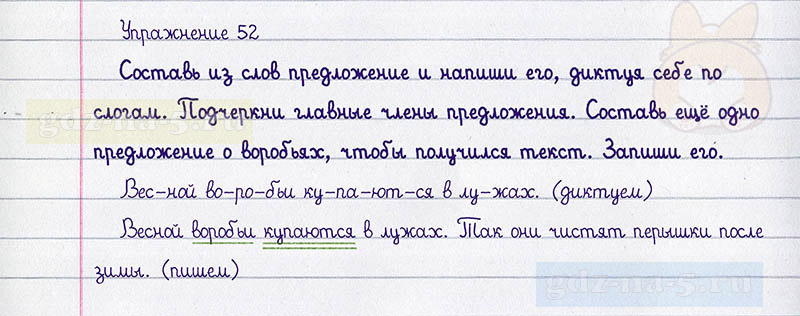 Упражнение 52
Составь из слов предложение и напиши его, диктуя себе по
слогам. Подчеркни главные члены предложения. Составь ещё одно
предложение о воробьях, чтобы получился текст. Запиши его.
Вес-ной во-ро-бьи ку-па-ют-ся в лу-жах. (диктуем)
Весной воробьи купаются в лужах. Так они чистят перышки после
зимы. (пишем)
gdz-na-5.ru
gdz-na-5.ru